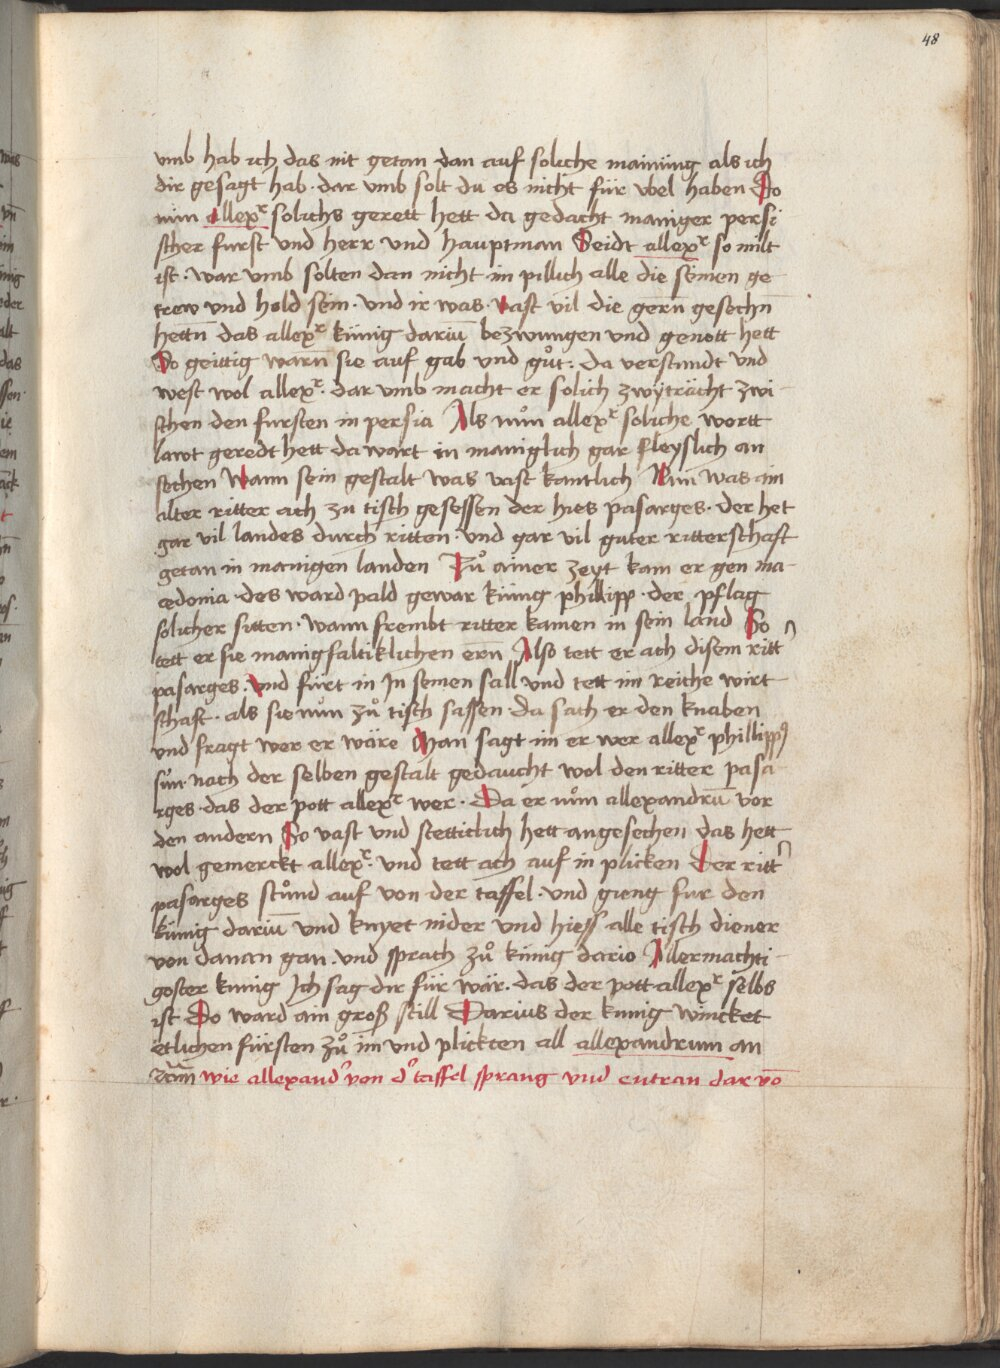 48
vmb hab ich das nit getan dan auf soliche mainung als ich
dir gesagt hab · dar vmb solt du es nicht für vbel haben Do
nun allexr solichs gerett hett da gedacht maniger persi
scher furst vnd herr vnd hauptman Seidt allexr so milt
ist · war vmb solten dan nicht im pillich alle die seinen ge
trew vnd hold sein · vnd ir was · vast vil die gern gesechn
hettn das allexr künig dariū bezwungen vnd genott hett
So geittig warn̄ sie auf gab vnd gůt · da verstundt vnd
west wol allexr · dar vmb macht er solich zwyträcht zwi
schen den fursten in persia Als nůn allexr soliche wortt
lawt geredt hett da wart in maniglich gar fleyslich an
sechen Wann sein gestalt was vast kantlich Nun was ain
alter ritter ach zu tisch gesessen der hies pasarges · der het
gar vil landes durch ritten · vnd gar vil guter ritterschaft
getan in manigen landen Zů ainer zeyt kam er gen ma-
cedonia · des ward pald gewar künig phillipp · der pflag
solicher sitten · wann frembt ritter kamen in sein land So
tett er sie manigfaltiklichen ern Also tett er ach disem ritt
pasarges · vnd fürt in In seinen sall vnd tett im reiche wirt
schaft · als sie nůn zů tisch sassen · da sach er den knaben
vnd fragt wer er wäre Man sagt im er wer allexr phillipp9
sůn · nach der selben gestalt gedaucht wol den ritter pasa
rges · das der pott allexr wer · Da er nům allexandrū vor
den andern So vast vnd stetticlich hett angesechen das hett
wol gemerckt allexr · vnd tett ach auf in plicken Der ritt
pasarges stůnd auf von der taffel · vnd gieng fur den
künig dariū vnd knyet nider vnd hiess alle tisch diener
von danan gan · vnd sprach zů künig dario Allermachti-
goster kunig Ich sag dir für wär · das der pott allexr selbs
ist Do ward ain groß still Darius der kunig wincket
etlichen fürsten zů im vnd plickten all allexandrum an
wie allexand von d taffel sprang vnd entran dar vō